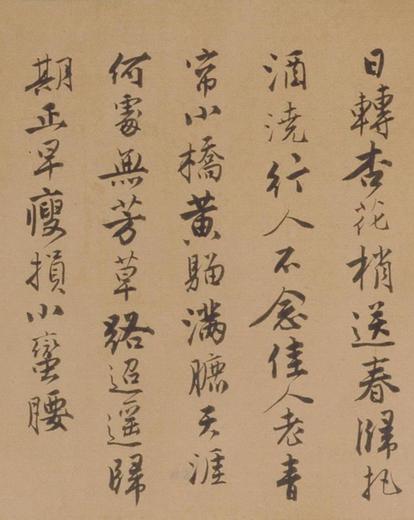 日轉杏花梢送春歸把
酒澆行人不念佳人老青
帘小橋黃滿天涯
何處無芳草路迢遥歸
期正早瘦損小蠻腰